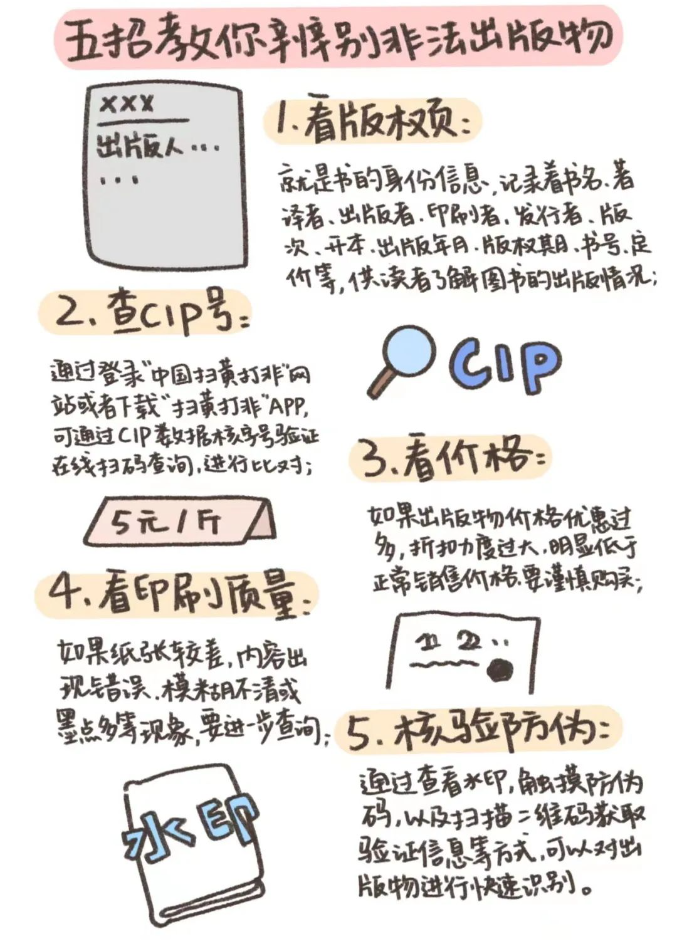 五招教你辨别非法出版物
xxx
出版人...
...
1.看版权页:
就是书的身份信息,记录着书名、著
译者、出版者、印刷者、发行者、版
次、开本、出版年月、版权期、书号、定
价等,供读者了解图书的出版情况;
2.查CIP号:
通过登录"中国扫黄打非"网
站或者下载"扫黄打非"APP,
可通过CIP数据核字号验证
在线扫码查询,进行比对;
CIP
3.看价格:
如果出版物价格优惠过
多,折扣力度过大,明显低于
正常销售价格,要谨慎购买;
5元/斤
4.看印刷质量:
如果纸张较差,内容出
现错误、模糊不清或
墨点多等现象,要进一步查询;
5.核验防伪:
通过查看水印,触摸防伪
码,以及扫描二维码获取
验证信息等方式,可以对出
版物进行快速识别。
水印